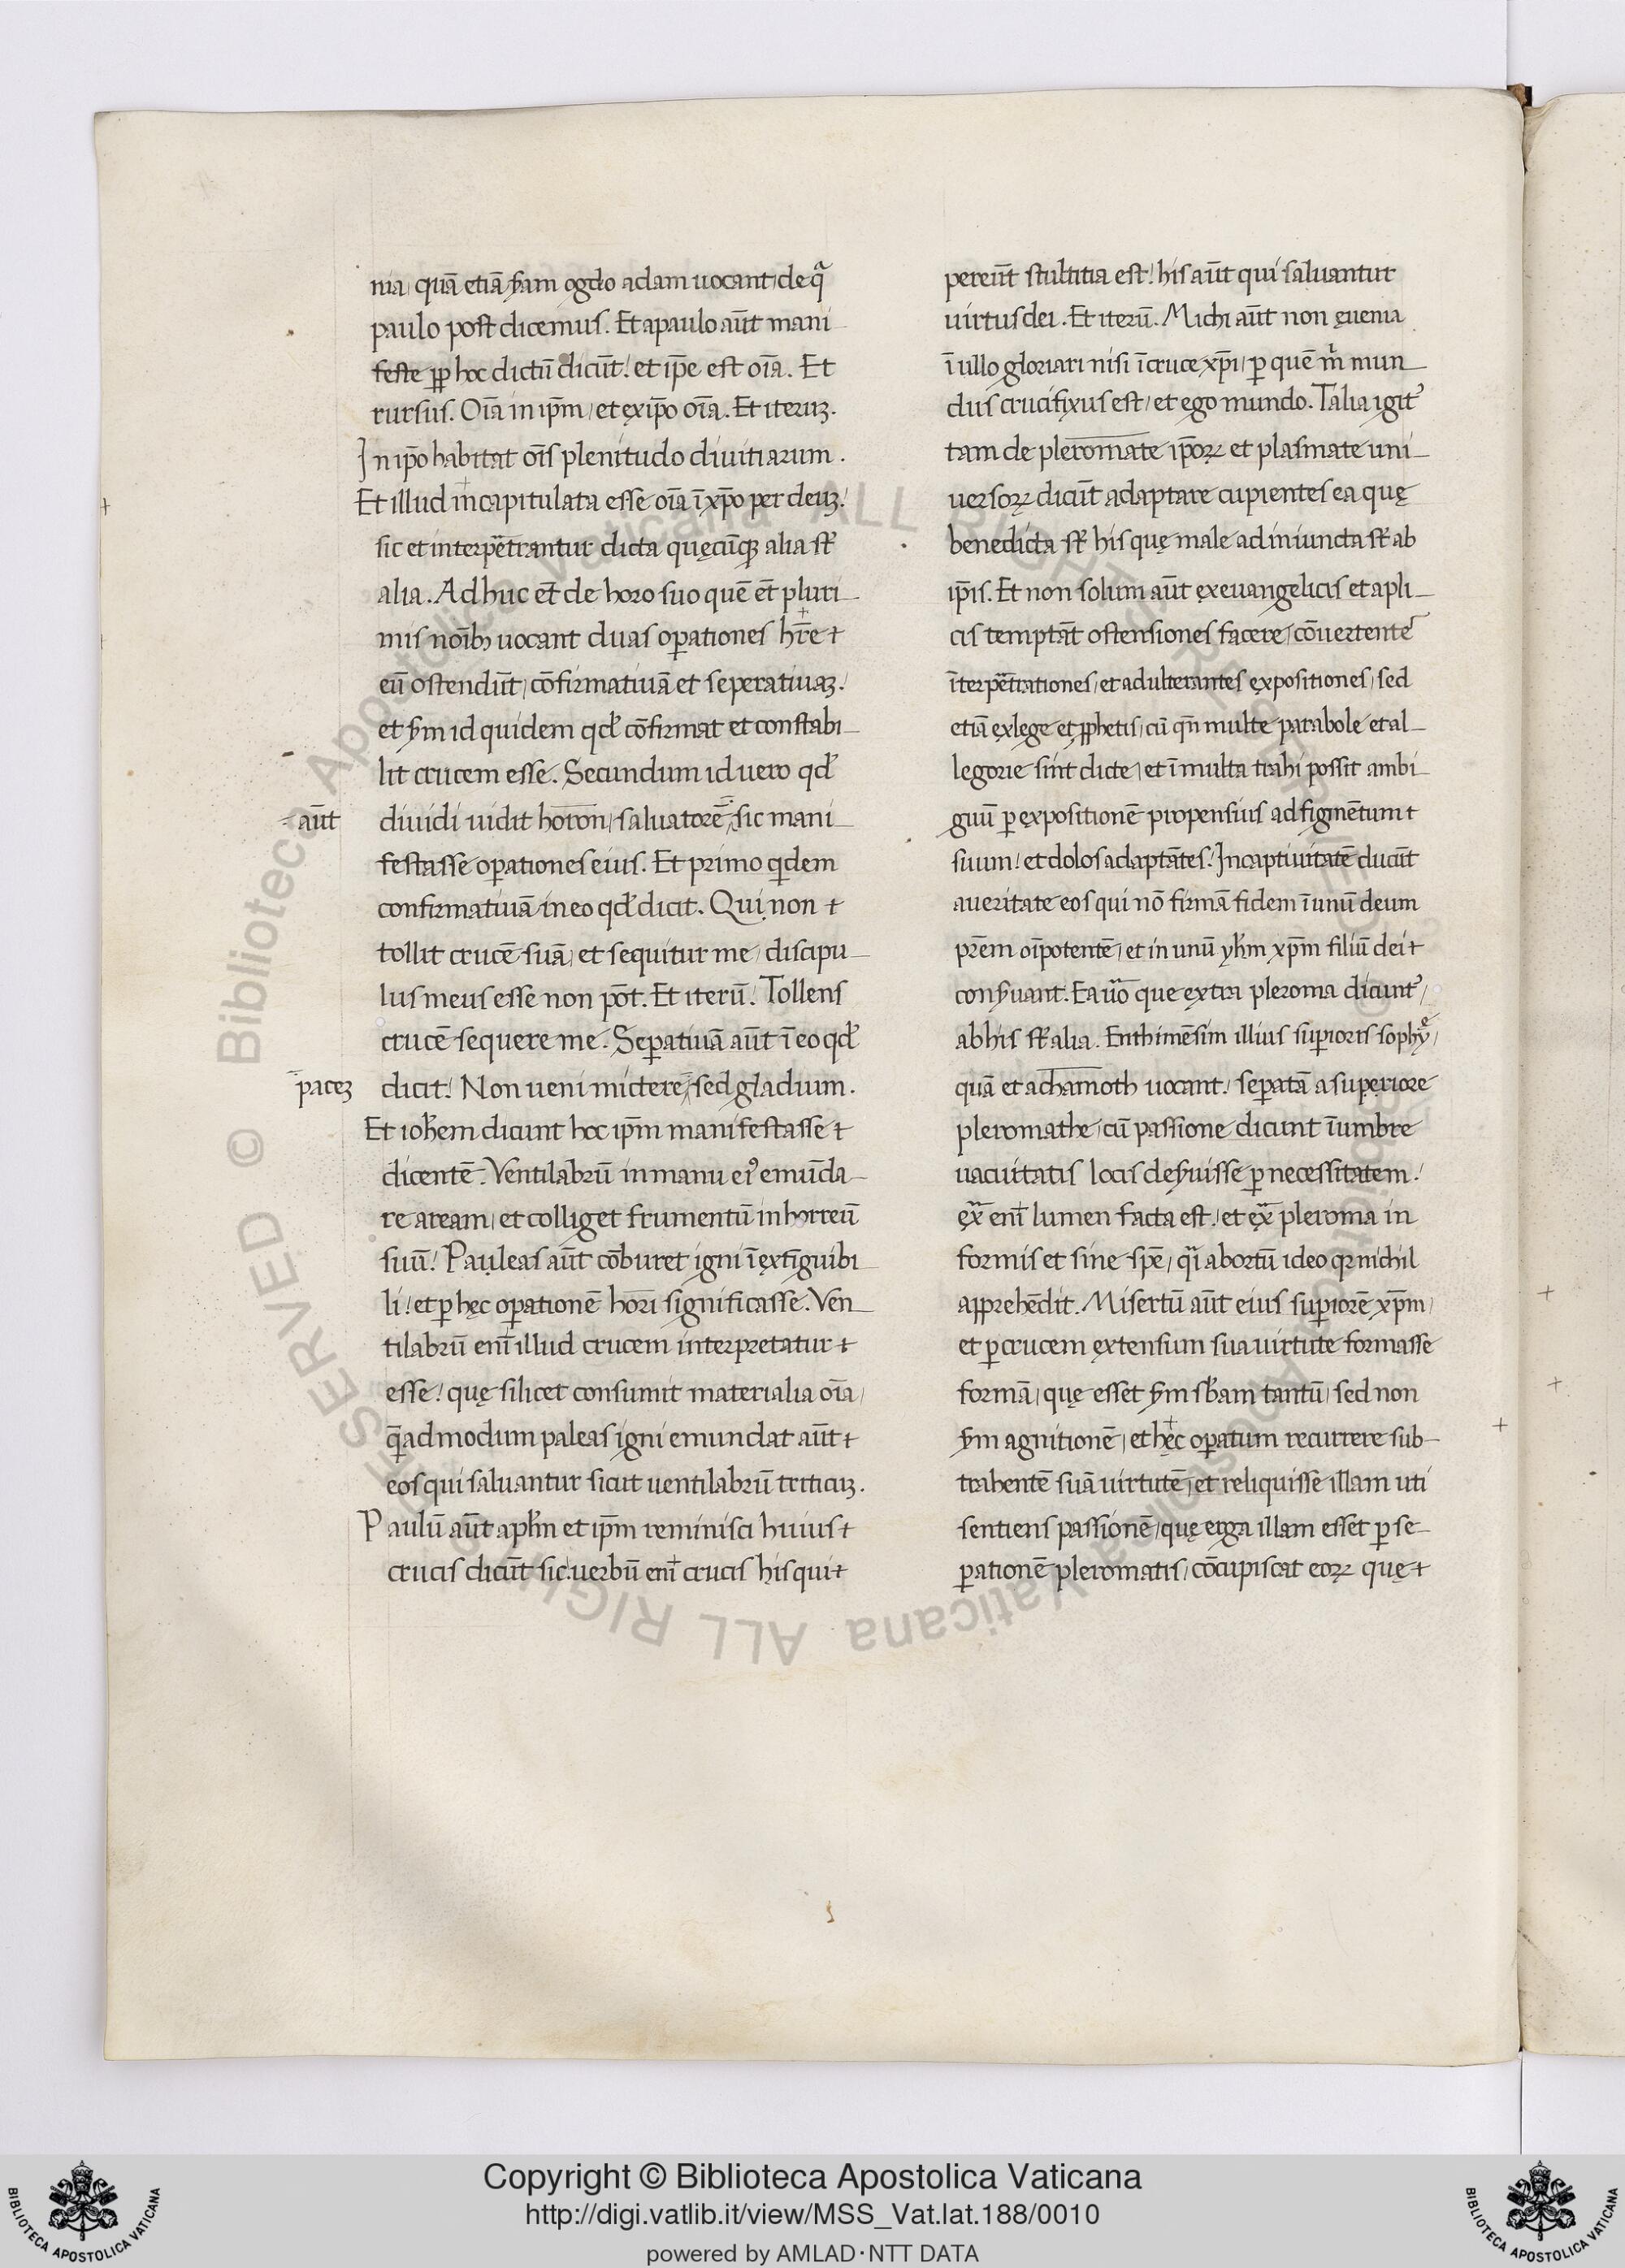 nia, quā etiā ẜam ogdo adam uocant, de qͣ
paulo post dicemus. Et a paulo aūt mani
feste ꝓp hoc dictū dicūt! et ip̄e est oīa. Et
rursus. Oīa in ip̄m, et ex ip̄o oīa. Et iteruꝫ.
In ip̄o habitat oīs plenitudo diuitiarum.
Et illud incapitulata esse oīa ī xp̄o per deuꝫ!
sic et interp̄trantur dicta quęcūqꝫ alia st̄
alia. Ad huc et̄ de horo suo quē et̄ pluri
mis noībꝫ uocant duas oꝑationes hr̄e +
eū ostendūt, cōfirmatiuā et seperatiuaꝫ!
et ẜm id quidem qd̓ cōfirmat et constabi
lit crucem esse. Secundum id uero qd̓
aūt
diuidi uidit horon, saluatorē, sic mani
festasse oꝑationes eius. Et primo qͥdem
confirmatiuā in eo qd̓ dicit. Qui non +
tollit crucē suā, et sequitur me, discipu
lus meus esse non pōt. Et iterū. Tollens
crucē sequere me. Seꝑatiuā aūt ī eo qd̓
paceꝫ
dicit! Non ueni mictere, sed gladium.
Et ioh̄em dicunt hoc ip̄m manifestasse +
dicentē. Ventilabrū in manu eiꝰ emūda
re aream, et colliget frumentū in horreū
suū! Pauleas aūt cōburet igni ī extīguibi
li! et ꝑ hęc oꝑationē hori significasse. Ven
tilabrū enī illud crucem interpretatur +
esse! quę silicet consumit materialia oīa,
q̄admodum paleas igni emundat aūt +
eos qui saluantur sicut uentilabrū triticuꝫ.
Paulū aūt ap̄ln et ip̄m reminisci huius +
crucis dicūt sic. uerbū enī crucis his qui +
pereūt stultitia est! his aūt qui saluantur
uirtus dei. Et iterū. Michi aūt non eueniа
ī ullo gloriari nisi ī cruce xp̄i, ꝑ quē m̄ mun
dus crucifixus est, et ego mundo. Talia igit̉
tam de pleromate ip̄oꝝ et plasmate uni
uersoꝝ dicūt adaptare cupientes ea quę
benedicta st̄ his quę male adinuncta st̄ ab
ip̄is. Et non solum aūt ex euangelicis et apli
cis temptāt ostensiones facere, cōuertente᷒
īterp̄trationes, et adulterantes expositiones, sed
etiā ex lege et ꝓphetis, cū qn̄ multe parabole et al
legorie sint dicte, et ī multa trahi possit ambi
guū ꝑ expositionē propensius ad figmētum +
suum! et dolos adaptātes! In captiuitatē ducūt
a ueritate eos qui nō firmā fidem ī unū deum
prēm oīpotentē, et in unū yh̄m xp̄m filiū dei +
conẜuant. Ea uͦo que extra pleroma dicunt̉,
ab his st̄ alia. Enthimēsim illius suꝑioris sophy̾,
quā et achamoth uocant! seꝑatā a superiore
pleromathe, cū passione dicunt ī umbre
uacuitatis locis deẜuisse ꝑ necessitatem!
exͣ enī lumen facta est! et exͣ pleroma in
formis et sine spē, qͥ abortū ideo qꝛ nichil
apprehēdit. Misertū aūt eius suꝑiorē xp̄m,
et ꝑ crucem extensum sua uirtute formasse
formā, quę esset ẜm sb̄am tantū, sed non
ẜm agnitionē, et hęc oꝑatum recurrere sub
trahentē suā uirtutē, et reliquisse illam uti
sentiens passionē, quę erga illam esset ꝑ se
ꝑationē pleromatis, cōcupiscat eoꝝ quę +
Copyright © Biblioteca Apostolica Vaticana
http://digi.vatlib.it/view/MSS_Vat.lat.188/0010
powered by AMLAD·NTT DATA